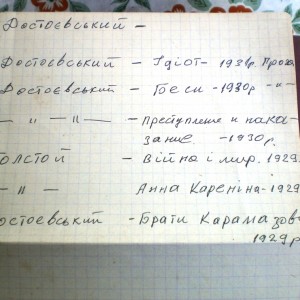 Достоєвський –
Достоєвський – Ідіот – 1931р. Проза
Достоєвський – Беси – 1930р –"–
— " — "— – Преступление и нака-
зание – 1930р.
олстой – Війна і мир. 1929.
– " – Анна Кареніна – 1929
остоєвський – Брати Карамазов
1929р